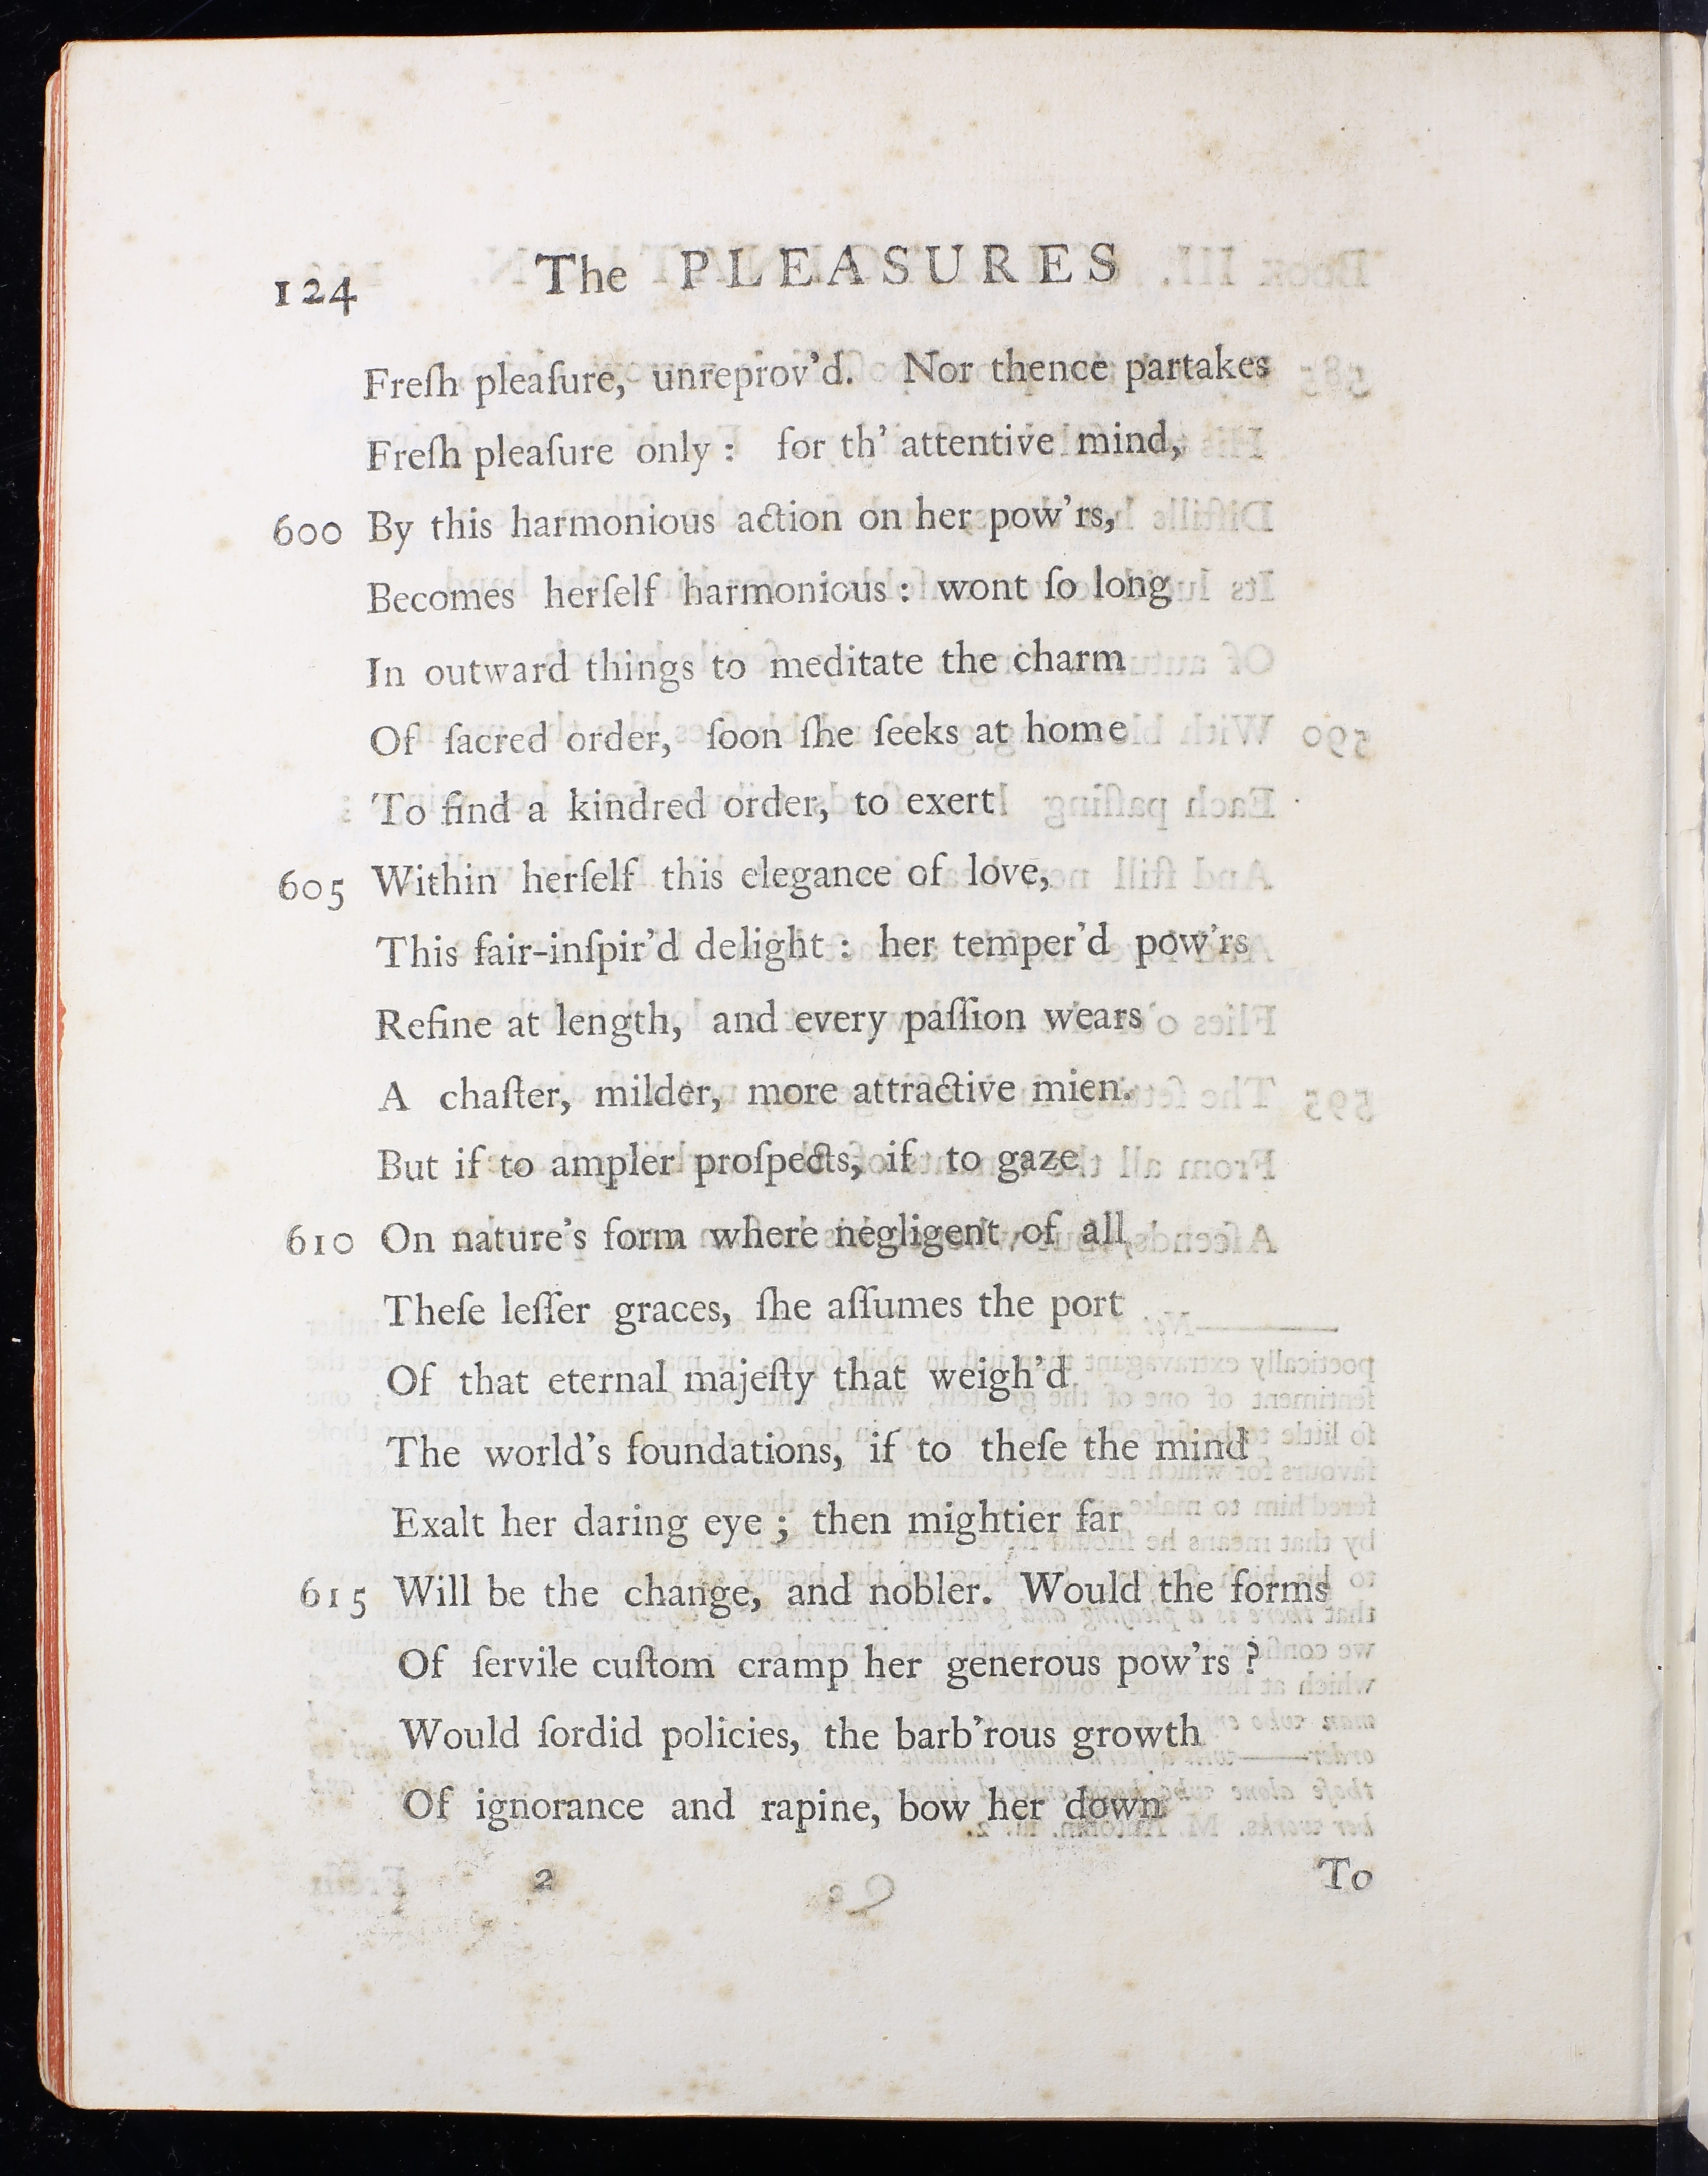 124 The PLEASURES
Freſh pleaſure, unreprov'd. Nor thence partakes
Freſh pleaſure only : for th' attentive mind,
600 By this harmonious action on her pow'rs,
Becomes herſelf harmonious : wont ſo long
In outward things to meditate the charm
Of ſacred order, ſoon ſhe ſeeks at home
To find a kindred order, to exert
605 Within herſelf this elegance of love,
This fair-inſpir'd delight : her temper'd pow'rs
Refine at length, and every paſſion wears
A chaſter, milder, more attractive mien.
But if to ampler proſpects, if to gaze
610 On nature's form where negligent of all
Theſe leſſer graces, ſhe aſſumes the port
Of that eternal majeſty that weigh'd
The world's foundations, if to theſe the mind
Exalt her daring eye ; then mightier far
615 Will be the change, and nobler. Would the forms
Of ſervile cuſtom cramp her generous pow'rs ?
Would ſordid policies, the barb'rous growth
Of ignorance and rapine, bow her down
2 To